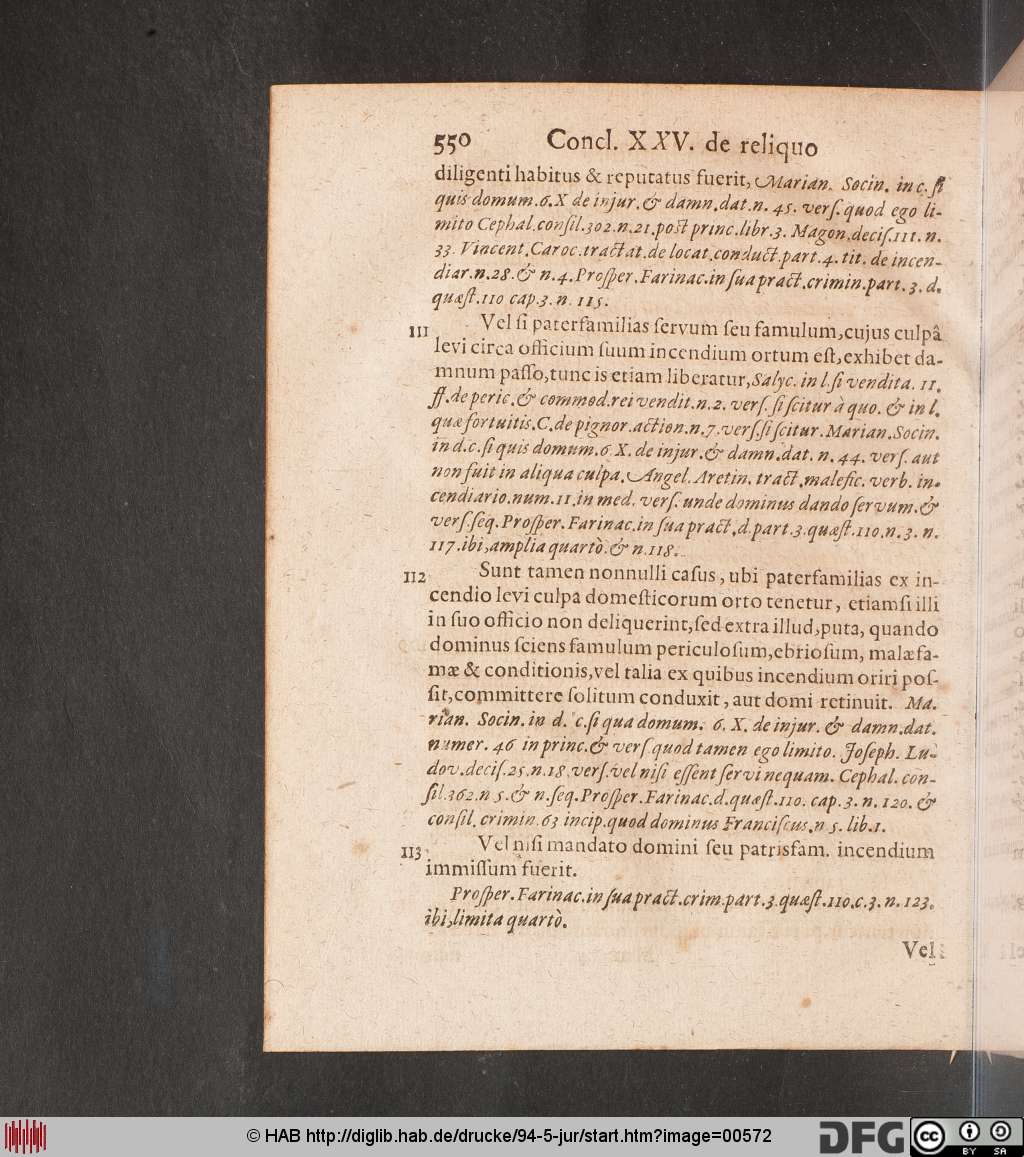 550 Concl. XXV. de reliquo
diligenti habitus & reputatus fuerit, Marian. Socin. in c. ſi
quis domum. 6. X de injur. & damn. dat. n. 45. verſ. quod ego li-
mito Cephal. conſil. 302. n. 21. post princ. libr. 3. Magon. deciſ. 111. n.
33. Vincent. Caroc. tractat. de locat. conduct. part. 4. tit. de incen-
diar. n. 28. & n. 4. Proſper. Farinac. in ſua pract. crimin. part. 3. d.
quæſt. 110 cap. 3. n. 115.
111 Vel ſi paterfamilias ſervum ſeu famulum, cujus culpâ
levi circa officium ſuum incendium ortum eſt, exhibet da-
mnum paſſo, tunc is etiam liberatur, Salyc. in l. ſi vendita. 11.
ff. de peric. & commod. rei vendit. n. 2. verſ. ſi ſcitur à quo. & in l.
quæ fortuitis. C. de pignor. action. n. 7. verſ. ſi ſcitur. Marian. Socin.
in d. c. ſi quis domum. 6 X. de injur. & damn. dat. n. 44. verſ. aut
non fuit in aliqua culpa. Angel. Aretin. tract. malefic. verb. in-
cendiario. num. 11. in med. verſ. unde dominus dando ſervum. &
verſ. ſeq. Proſper. Farinac. in ſua pract. d. part. 3. quæſt. 110. n. 3. n.
117. ibi, amplia quartò. & n. 118.
112 Sunt tamen nonnulli caſus, ubi paterfamilias ex in-
cendio levi culpa domeſticorum orto tenetur, etiamſi illi
in ſuo officio non deliquerint, ſed extra illud, puta, quando
dominus ſciens famulum periculoſum, ebrioſum, malæ fa-
mæ & conditionis, vel talia ex quibus incendium oriri poſ-
ſit, committere ſolitum conduxit, aut domi retinuit. Ma.
rian. Socin. in d. c. ſi qua domum. 6. X. de injur. & damn. dat.
numer. 46 in princ. & verſ. quod tamen ego limito. Joſeph. Lu-
dov. deciſ. 25. n. 18. verſ. vel niſi eſſent ſervi nequam. Cephal. con-
ſil. 362. n 5. & n. ſeq. Proſper. Farinac. d. quæſt. 110. cap. 3. n. 120. &
conſil. crimin. 63 incip. quod dominus Franciſcus. n 5. lib. 1.
113 Vel niſi mandato domini ſeu patrisfam. incendium
immiſſum fuerit.
Proſper. Farinac. in ſua pract. crim. part. 3. quæſt. 110. c. 3. n. 123.
ibi, limita quartò.
Vel
© HAB http://diglib.hab.de/drucke/94-5-jur/start.htm?image=00572
DFG cc BY SA